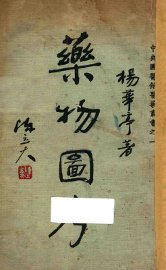 中央國醫館醫藥叢書之一
楊華亭著
藥物圖考